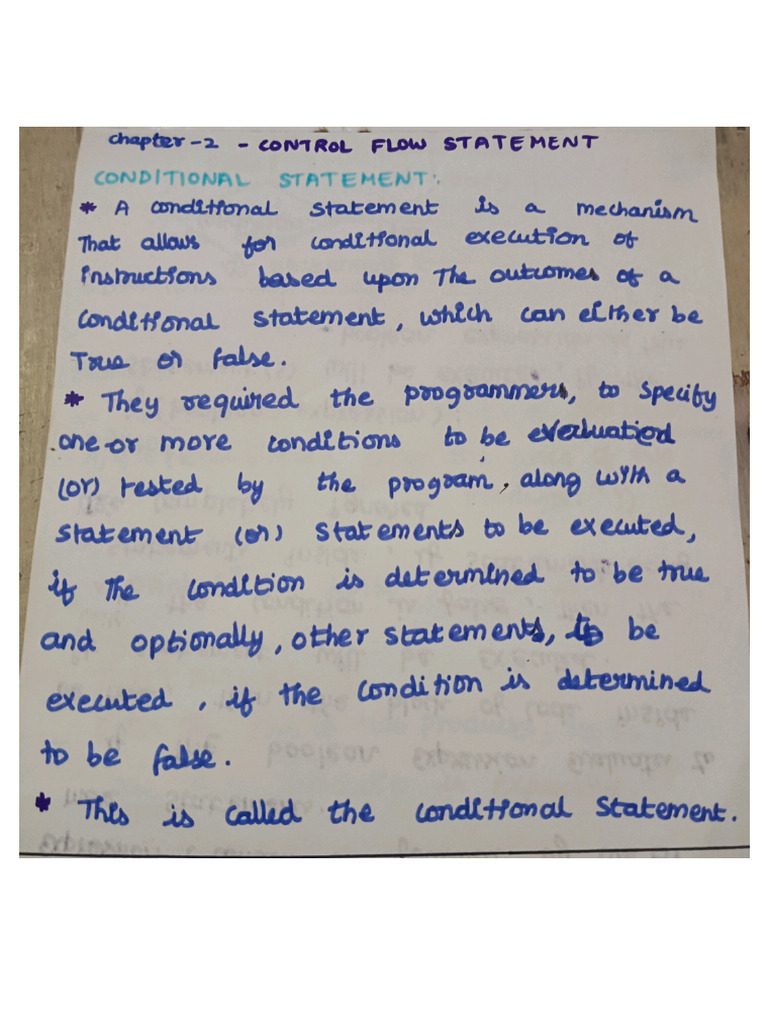 chapter-2 - CONTROL FLOW STATEMENT
CONDITIONAL STATEMENT:
* A conditional statement is a mechanism
That allows for conditional execution of
instructions based upon The outcomes of a
conditional statement, which can either be
True or false.
* They required the programmers, to specify
one-or more conditions to be
(or) tested by the program, along with a
statement (or) statements to be executed,
if the condition is determined to be true
and optionally, other statements, to be
executed, if the condition is determined
to be false.
* This is called the conditional statement.